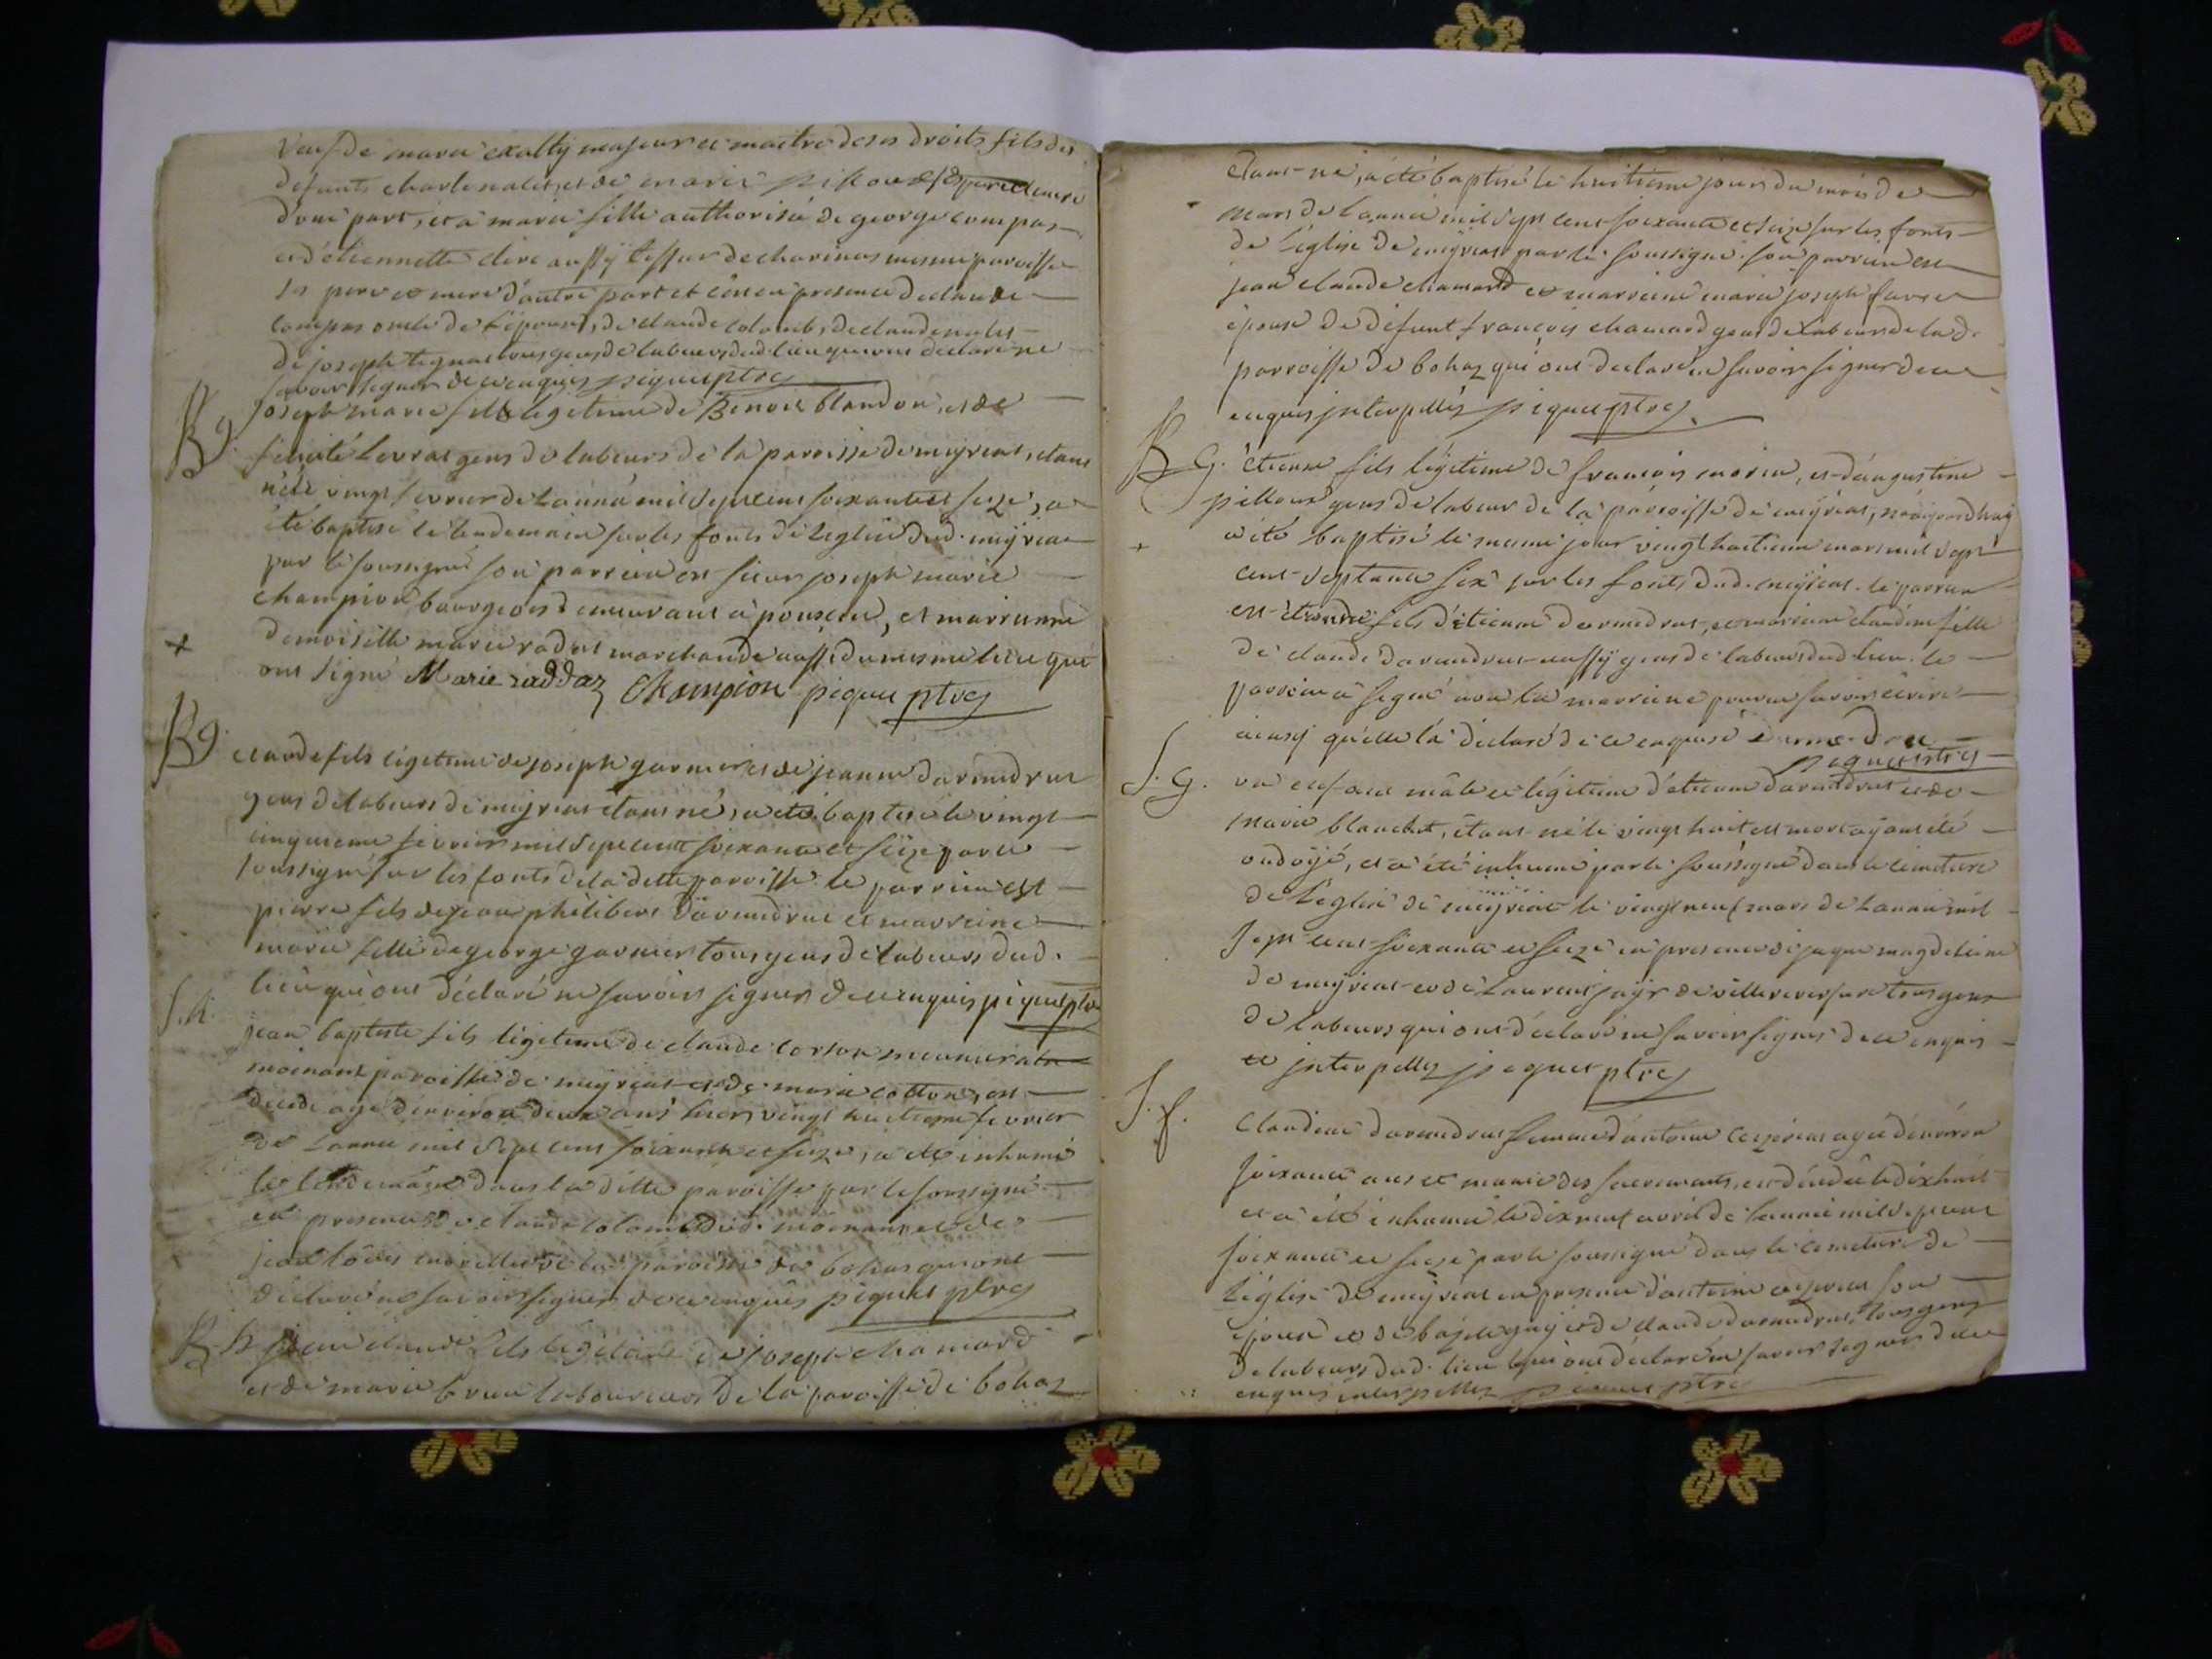 veuf de marie exally majeur et maitre de ses droits fils des
defunts charle nalet, et de marie
d'une part, et a marie fille authorisée de george compas
et d'étiennette clere aussy tessur de charinas mesme paroisse
ses pere et mere d'autre part et ce en presence de claude
compas oncle de l'épouse, de claude colomb, de claude nalet
de joseph tignat tous gens de labeurs dud. lieu qui ont declaré ne
savoir signer de ce enquis piquet ptre
B g. joseph marie fils légitime de Benoit blandon, et de
felicité Levrat gens de labeurs de la paroisse de meyriat, étant
né le vingt fevrier de l'année mil sept cent soixante et seize, a
été baptisé le lendemain sur les fonts de l'eglise dud. meyriat
par le soussigné son parrein est sieur joseph marie
champion bourgeois demeurant à, et marrienne
demoiselle marie radat marchande aussi du mesme lieu qui
ont signé Marie raddaz Champion piquet ptre
B g. claude fils légitime de joseph garnier et de jeanne darmedrut
gens de labeurs de meyriat étant né, a été baptisé le vingt
cinquieme fevrier mil sept cent soixante et seize par le
soussigné sur les fonts de la ditte paroisse le parrein est
pierre fils de jean philibert darmedrut et marreine
marie fille de george garnier tous gens de labeurs dud.
lieu qui ont déclaré ne savoir signer de ce enquis piquet ptre
S. h.
jean baptiste fils légitime de claude corson meunier
moinant paroisse de meyriat et de marie cotton, est
décédé agé d'environ deux ans hier vingt huitieme fevrier
de l'année mil sept cent soixante et seize, a été inhumé
le lendemain dans la ditte paroisse par le soussigné
en presence de claude colomb dud. moinant et de
jean louis de la paroisse de bohas qui ont
déclaré ne savoir signer de ce enquis piquet ptre
B. h jean claude fils légitime de joseph chamard
et de marie brun laboureurs de la paroisse de bohaz
étant né, a été baptisé le huitieme jour du mois de
mars de l'année mil sept cent soixante et seize sur les fonts
de l'église de meyriat par le soussigné son parrein est
jean claude chamard et marreine marie joseph
épouse de défunt françois chamard gens de labeurs de lad.
parroisse de bohaz qui ont declaré ne savoir signer de ce
enquis interpellés piquet ptre
B G. étienne fils légitime de françois morin, et d'augustine
pilloux gens de labeur de la paroisse de meyriat, né aujourdhuy
a été baptisé le mesme jour vingt huitieme mars mil sept
cent septante six sur les fonts dud. meyriat. le parrein
est étienne fils d'étienne darmedrut, et marrienne claudine fille
de claude darmedrut aussy gens de labeurs dud. lieu. le
parrein a signé non la marreine pour ne savoir écrire
ainsy qu'elle l'a déclaré de ce enquise darmedru
piquet ptre
S. g. un enfant mâle et légitime d'étienne darmedrut et de
marie blanchet, étant né le vingt huit et mort ayant été
ondoyé, et a été inhumé par le soussigné dans le cimetiere
de l'église de meyriat le vingt neuf mars de l'année mil
sept cent soixante et seize en presence de jaque magdeleine
de meyriat et de Laurent jayr de villereversure tous gens
de labeurs qui ont déclaré ne savoir signer de ce enquis
et interpellés piquet ptre
S. f.
Claudine darmedrut femme d'antoine ceyzeriat agée d'environ
soixante ans et munie des sacrements, est décédée le dix huit
et a été inhumée le dix neuf avril de l'année mil sept cent
soixante et seize par le soussigné dans le cimetiere de
l'église de meyriat en presence d'antoine ceyzeriat son
époux et de et de claude darmedrut, tous gens
de labeurs dud. lieu qui ont déclaré ne savoir signer de ce
enquis interpellés piquet ptre